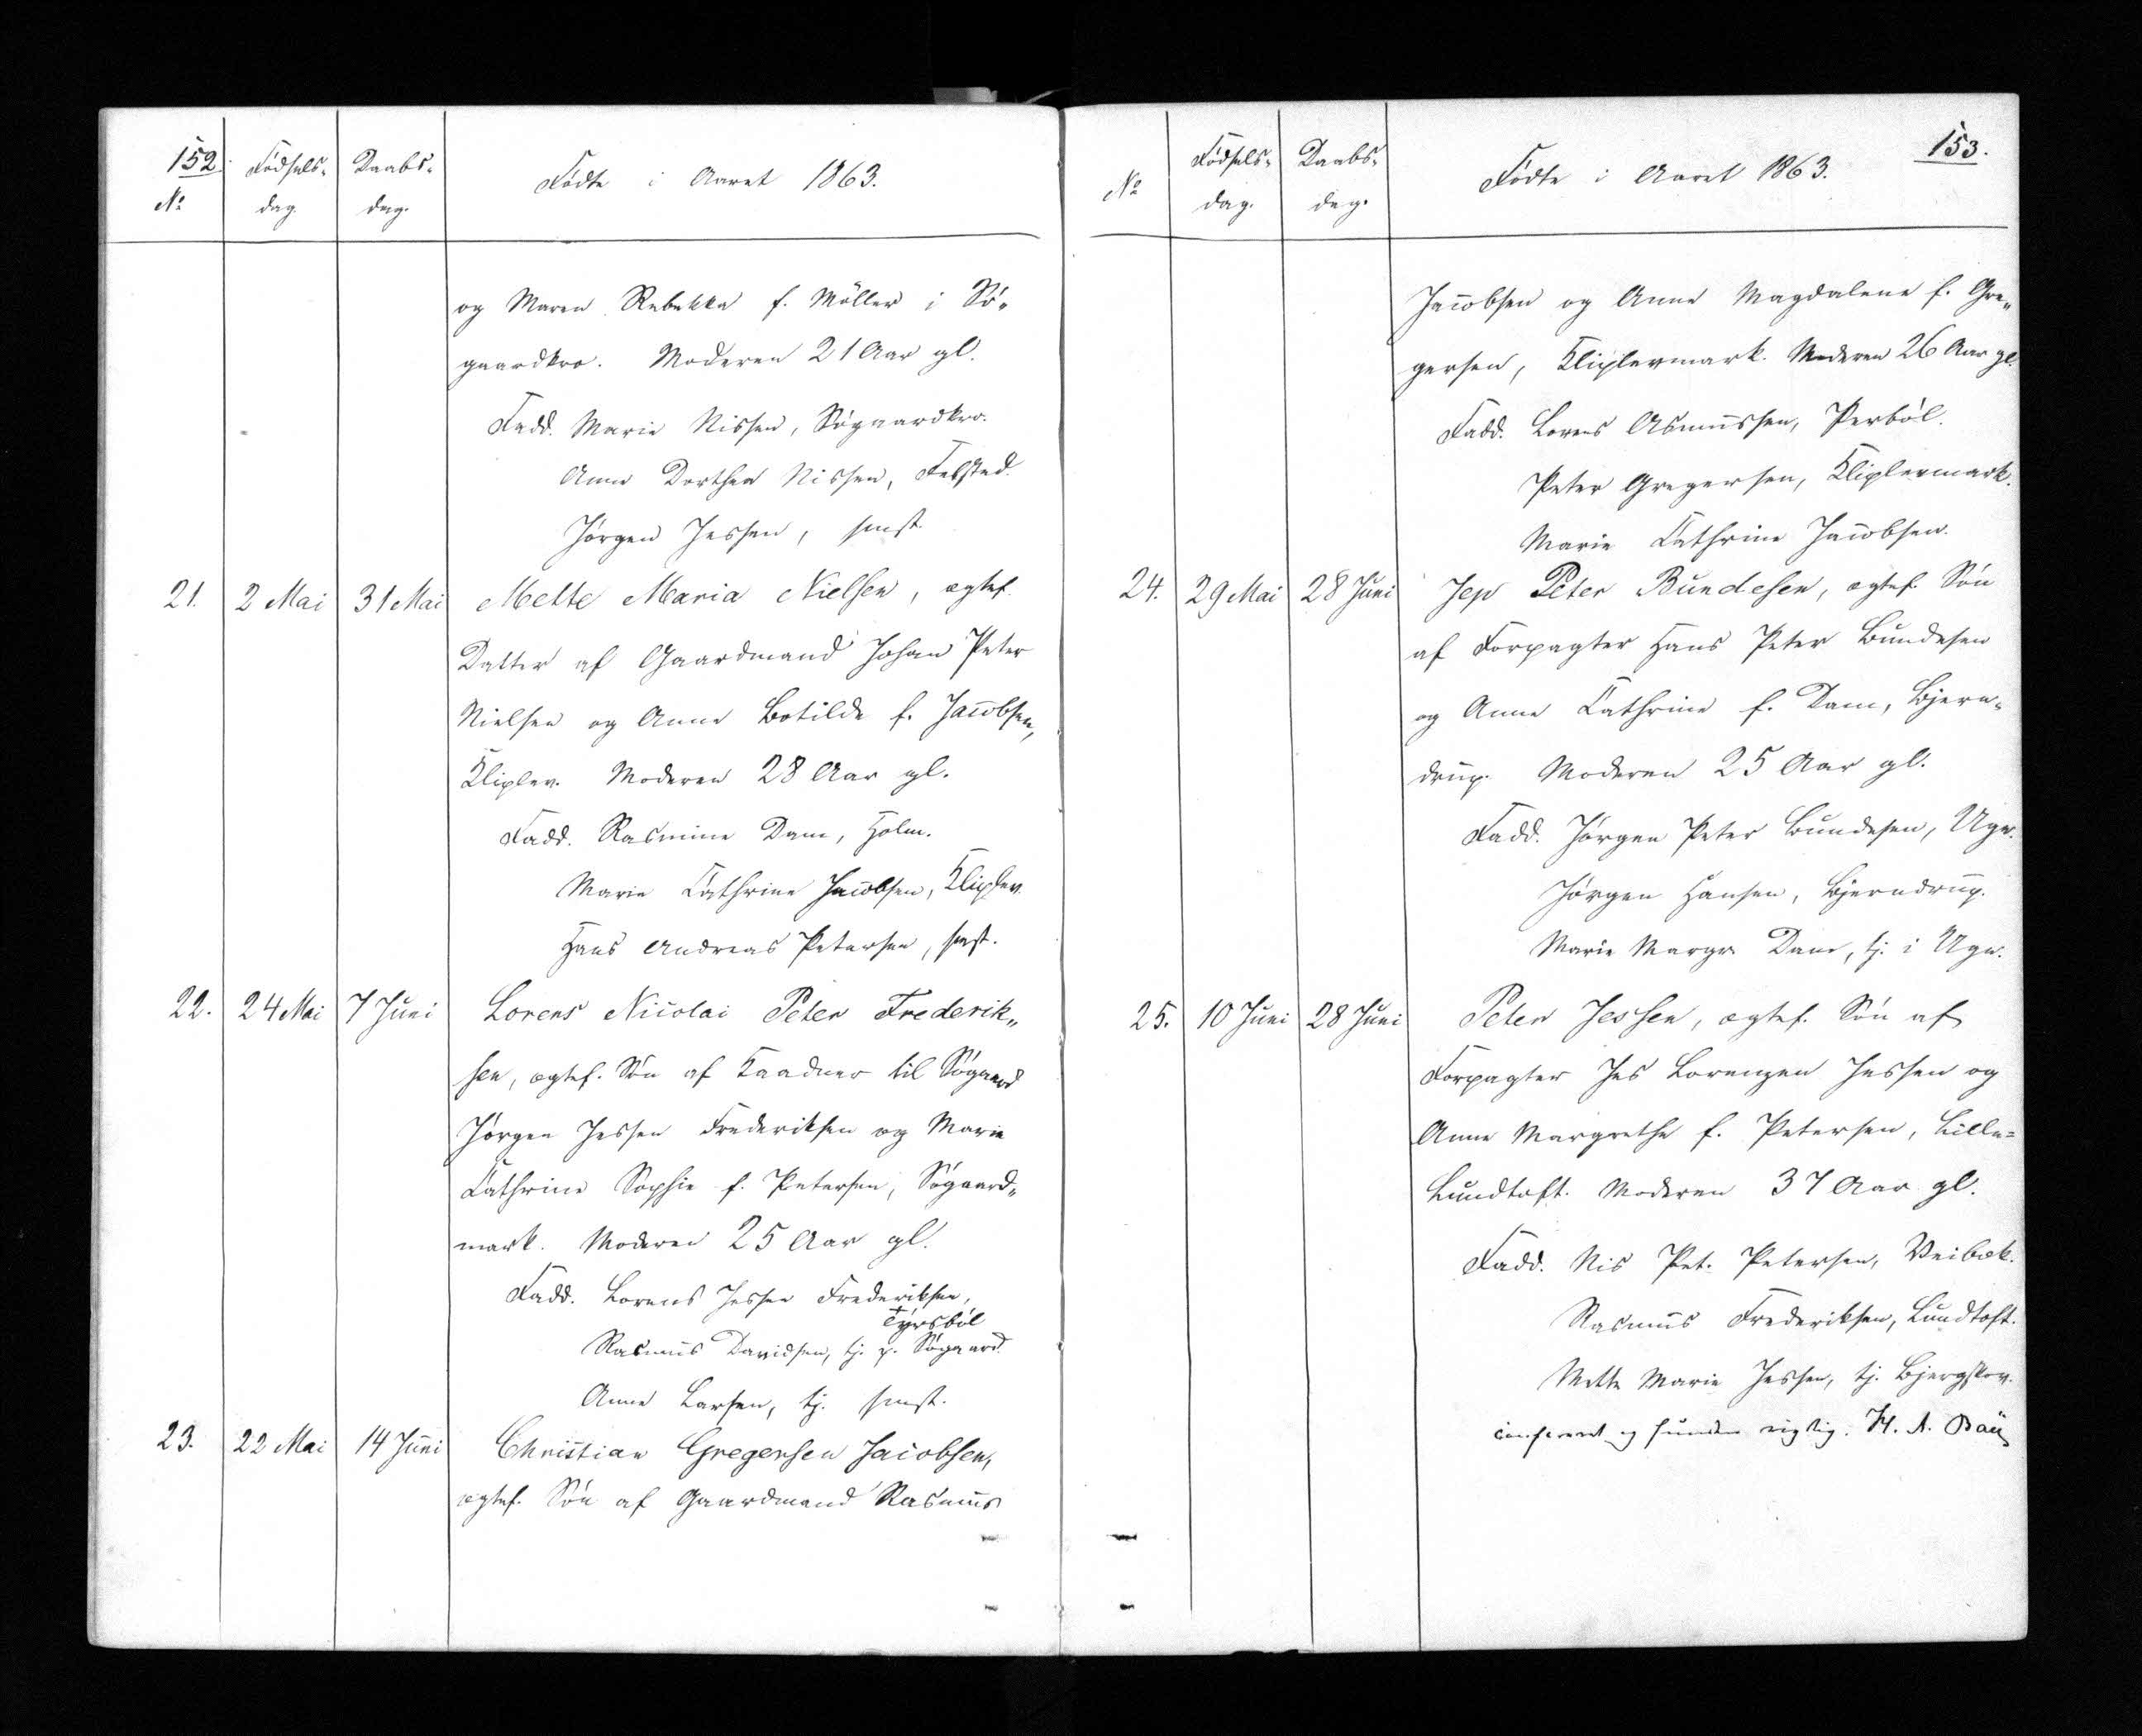 152.
№
Fødsels-
dag.
Daabs-
dag.
Fødte i Aaret 1863.
og Maren Rebekka f. Möller i Sö-
gaardkro. Moderen 21 Aar gl.
Fadd. Marie Nissen, Søgaardkro.
Anne Dorthea Nissen, Felsted.
Jørgen Jessen, smst.
21. 2 Mai 31 Mai Mette Maria Nielsen, ægtef.
Datter af Gaardmand Johan Peter
Nielsen og Anne Botilde f. Jacobsen,
Kliplev. Moderen 28 Aar gl.
Fadd. Rasmine Dam, Holm.
Marie Cathrine Jacobsen, Kliplev
Hans Andreas Petersen, smst.
22. 24 Mai 7 Juni Lorens Nicolai Peter Frederik„
sen, ægtef. Søn af Kaadner til Søgaard
Jørgen Jessen Frederiksen og Marie
Cathrine Sophie f. Petersen, Søgaard„
mark. Moderen 25 Aar gl.
Fadd. Lorens Jessen Frederiksen,
Tyrsbøl
Rasmus Davidsen, tj. p. Søgaard.
Anne Larsen, tj. smst.
23. 22 Mai 14 Juni Christian Gregersen Jacobsen,
ægtef. Søn af Gaardmand Rasmus
153.
№
Fødsels-
dag.
Daabs-
dag.
Fødte i Aaret 1863.
Jacobsen og Anne Magdalene f. Gre„
gersen, Kliplevmark. Moderen 26 Aar gl.
Fadd. Lorens Asmussen, Perbøl.
Peter Gregersen, Kliplevmark.
Marie Cathrine Jacobsen.
24. 29 Mai 28 Juni Jep Peter Bundesen, ægtef. Søn
af Forpagter Hans Peter Bundesen
og Anne Cathrine f. Dam, Bjern-
drup. Moderen 25 Aar gl.
Fadd. Jørgen Peter Bundesen, Uge.
Jørgen Hansen, Bjerndrup.
Marie Margr. Dam, tj. i Uge.
25. 10 Juni 28 Juni Peter Jessen, ægtef. Søn af
Forpagter Jes Lorenzen Jessen og
Anne Margrethe f. Petersen, Lille=
Lundtoft. Moderen 37 Aar gl.
Fadd. Nis Pet. Petersen, Veibæk.
Rasmus Frederiksen, Lundtoft.
Mette Marie Jessen, tj. Bjergskov.
confereret og funden rigtig. H. A.